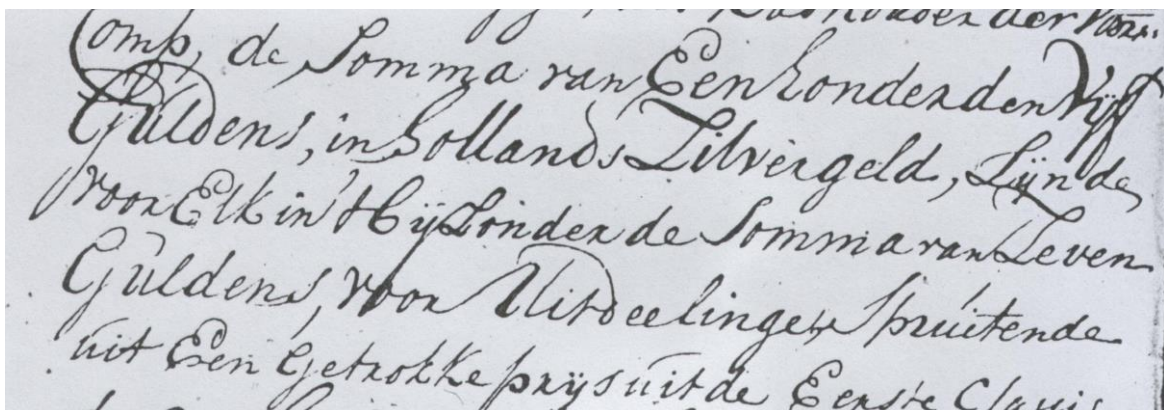 der Voorz:
Comp, de Somma van Een honderd en Vijf
Guldens, in hollands Zilvergeld, Zijnde
voor Elk in 't Bijzonder de Somma van Zeven
Guldens, voor Uitdeelingen, Spruitende
uit Een Getrokke prijs uit de Eerste Clauis